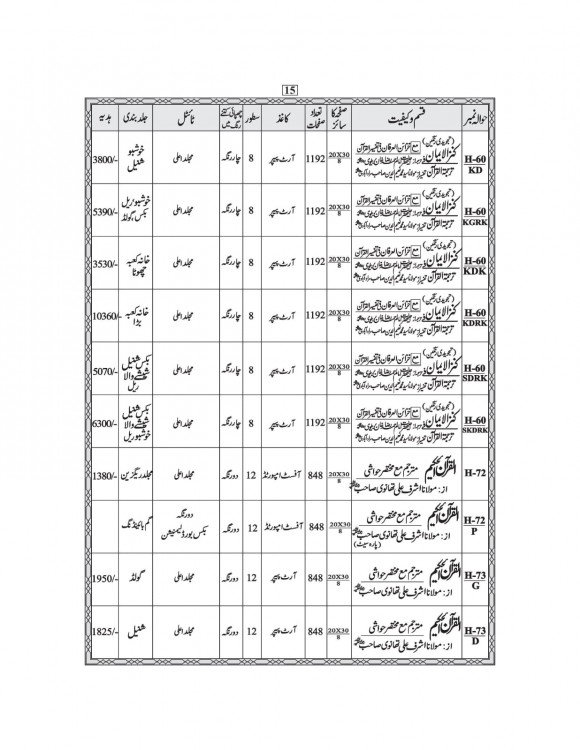 15
حوالہ نمبر قسم و کیفیت صفحہ کا سائز تعداد صفحات کاغذ سطور چھپائی کتنے رنگ میں ٹائٹل جلد بندی ہدیہ
H-60 KD (تجویدی رنگین) کنزالایمان مع خزائن العرفان فی تفسیر القرآن ترجمۃ القرآن 20X30/8 1192 آرٹ پیپر 8 چار رنگہ مجلد اعلی خوشبو شنیل 3800/-
H-60 KGRK (تجویدی رنگین) کنزالایمان مع خزائن العرفان فی تفسیر القرآن ترجمۃ القرآن 20X30/8 1192 آرٹ پیپر 8 چار رنگہ مجلد اعلی خوشبو ریل بکس گولڈ 5390/-
H-60 KDK (تجویدی رنگین) کنزالایمان مع خزائن العرفان فی تفسیر القرآن ترجمۃ القرآن 20X30/8 1192 آرٹ پیپر 8 چار رنگہ مجلد اعلی خانہ کعبہ چھوٹا 3530/-
H-60 KDRK (تجویدی رنگین) کنزالایمان مع خزائن العرفان فی تفسیر القرآن ترجمۃ القرآن 20X30/8 1192 آرٹ پیپر 8 چار رنگہ مجلد اعلی خانہ کعبہ بڑا 10360/-
H-60 SDRK (تجویدی رنگین) کنزالایمان مع خزائن العرفان فی تفسیر القرآن ترجمۃ القرآن 20X30/8 1192 آرٹ پیپر 8 چار رنگہ مجلد اعلی بکس شنیل شیشے والا ریل 5070/-
H-60 SKDRK (تجویدی رنگین) کنزالایمان مع خزائن العرفان فی تفسیر القرآن ترجمۃ القرآن 20X30/8 1192 آرٹ پیپر 8 چار رنگہ مجلد اعلی بکس شنیل شیشے والا خوشبو ریل 6300/-
H-72 القرآن الحکیم مترجم مع مختصر حواشی از: مولانا اشرف علی تھانوی صاحب 20X30/8 848 آفسٹ امپورٹڈ 12 دو رنگہ مجلد اعلی مجلد ریگزین 1380/-
H-72 P القرآن الحکیم مترجم مع مختصر حواشی از: مولانا اشرف علی تھانوی صاحب (پارہ سیٹ) 20X30/8 848 آفسٹ امپورٹڈ 12 دو رنگہ دو رنگہ بکس بورڈ لیمینیشن گم بائنڈنگ
H-73 G القرآن الحکیم مترجم مع مختصر حواشی از: مولانا اشرف علی تھانوی صاحب 20X30/8 848 آرٹ پیپر 12 دو رنگہ مجلد اعلی گولڈ 1950/-
H-73 D القرآن الحکیم مترجم مع مختصر حواشی از: مولانا اشرف علی تھانوی صاحب 20X30/8 848 آرٹ پیپر 12 دو رنگہ مجلد اعلی شنیل 1825/-